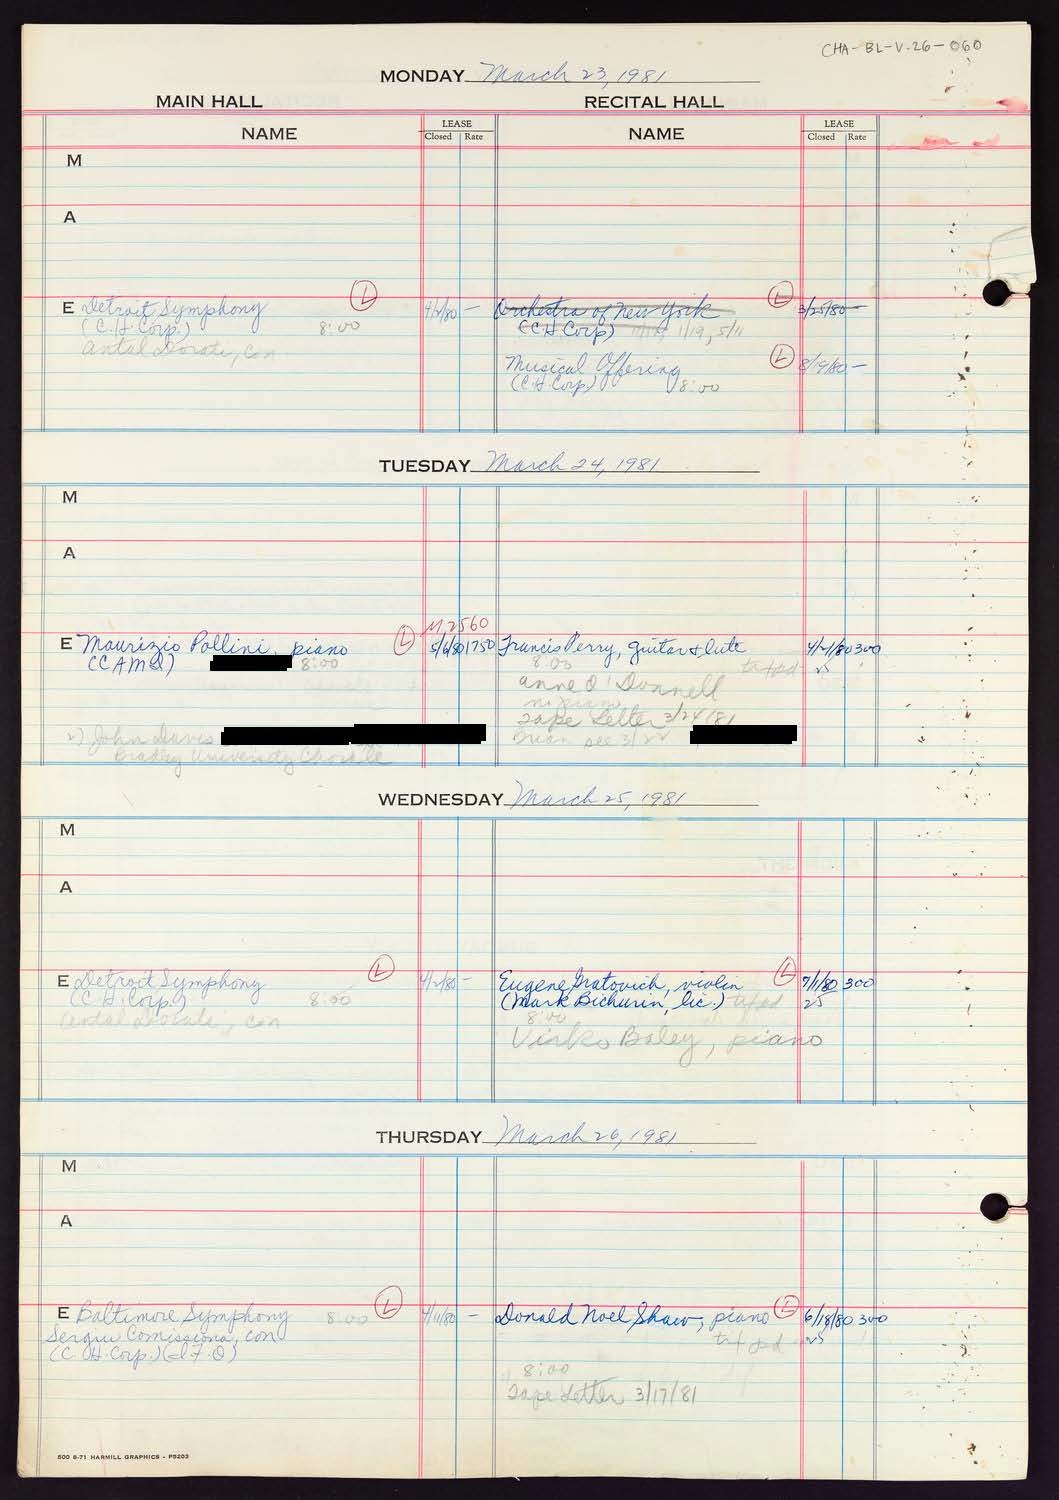 CHA-BL-V.26-060
MONDAY March 23, 1981
MAIN HALL RECITAL HALL
NAME LEASE Closed Rate NAME LEASE Closed Rate
M
A
E Detroit Symphony L 4/2/80 -
(C.H. Corp.) 8:00
Antal Dorati, con
Orchestra of New York L 3/25/80 -
(CH Corp) 1/19, 5/11
Musical Offering L 8/19/80 -
(C.H. Corp) 8:00
TUESDAY March 24, 1981
M
A
M 2560
E Maurizio Pollini, piano L 5/6/80 1750
(CAMI) 8:00
2) John Davis
Bradley University Chorale
Francis Perry, guitar & lute 4/21/80 300
8:00 tx + pd 25
Anne O'Donnell
no piano
Tape Letter 3/24/81
Brian see 3/22
WEDNESDAY March 25, 1981
M
A
E Detroit Symphony L 4/2/80 -
(C.H. Corp.) 8:00
Antal Dorati, con
Eugene Gratovich, violin L 7/1/80 300
(Mark Bichurin, lic.) tx pd 25
8:00
Virko Baley, piano
THURSDAY March 26, 1981
M
A
E Baltimore Symphony 8:00 L 4/11/80 -
Sergiu Comissiona, con
(C.H. Corp.) (I.F.O)
Donald Noel Shaw, piano L 6/18/80 300
tx + pd 25
8:00
Tape Letter 3/17/81
500 8-71 HARMILL GRAPHICS - P5203